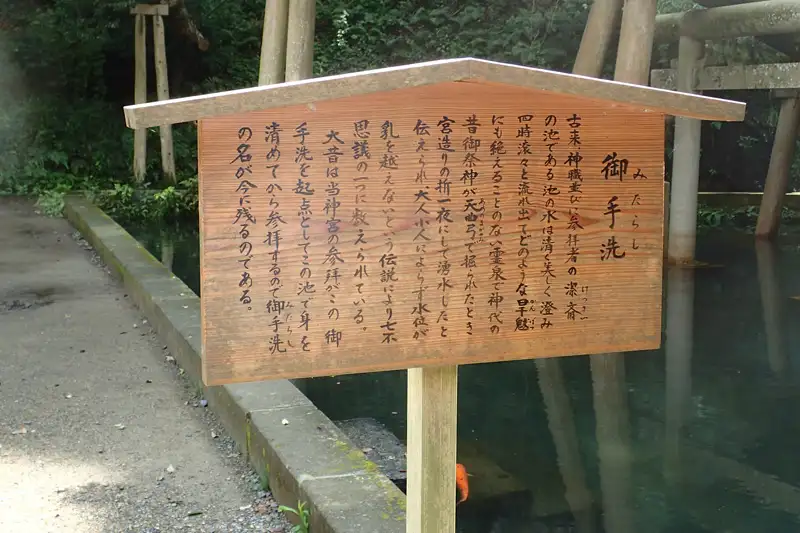 御手洗
みたらし
古来、神職並びに参拝者の潔斎
けっさい
の池である池の水は清く美しく澄み
四時滾々と流れ出てどのような旱魃
かんばつ
にも絶えることのない霊泉で神代の
昔御祭神が天曲弓で掘られたとき
宮造りの折一夜にして湧水したと
伝えられ大人小人によらず水位が
乳を越えないという伝説により七不
思議の一つに数えられている。
大昔は当神宮の参拝がこの御
手洗を起点としてこの池で身を
清めてから参拝するので御手洗
みたらし
の名が今に残るのである。